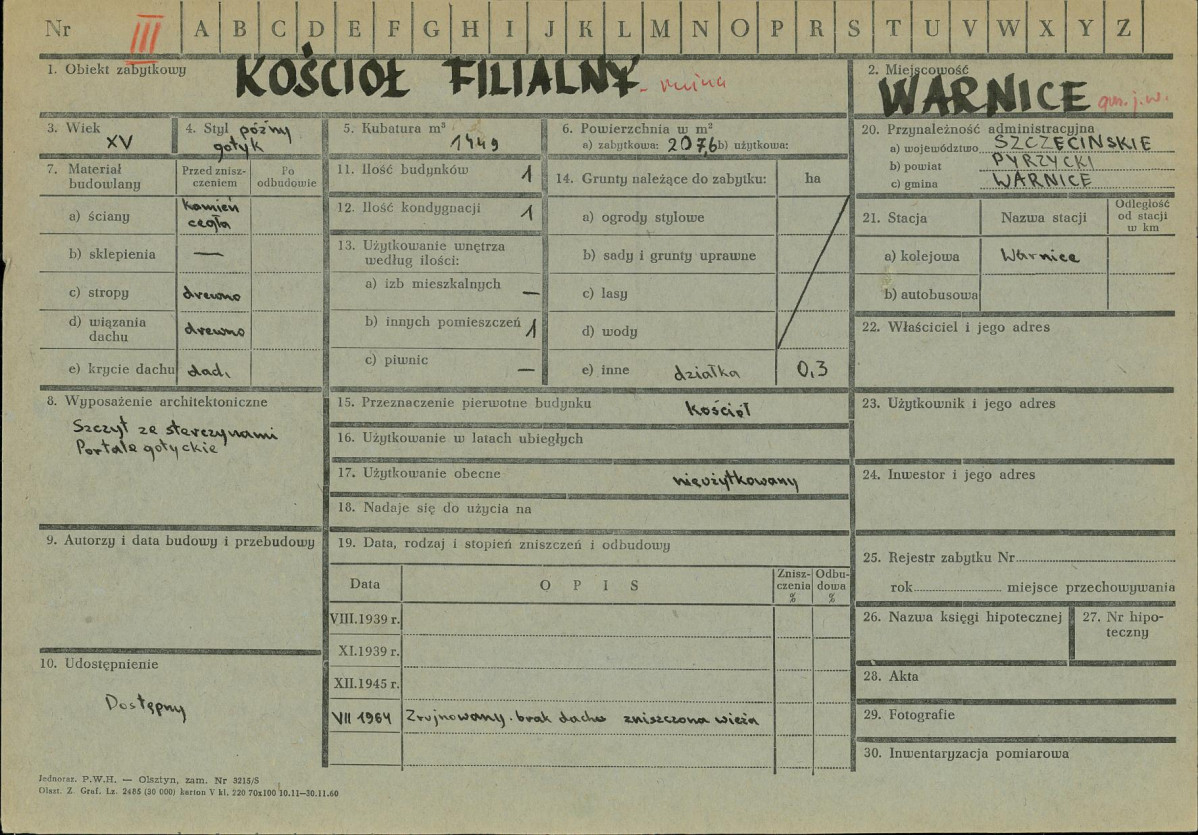 Nr III A B C D E F G H I J K L M N O P R S T U V W X Y Z
1. Obiekt zabytkowy KOŚCIOŁ FILIALNY - ruina
2. Miejscowość WARNICE gm. j.w.
3. Wiek XV
4. Styl późny gotyk
5. Kubatura m³ 1449
6. Powierzchnia w m²
a) zabytkowa: 207,6 b) użytkowa:
7. Materiał budowlany
Przed zniszczeniem
Po odbudowie
a) ściany kamień cegła
b) sklepienia —
c) stropy drewno
d) wiązania dachu drewno
e) krycie dachu dach.
8. Wyposażenie architektoniczne
Szczyt ze sterczynami
Portale gotyckie
9. Autorzy i data budowy i przebudowy
10. Udostępnienie
Dostępny
11. Ilość budynków 1
12. Ilość kondygnacji 1
13. Użytkowanie wnętrza
według ilości:
a) izb mieszkalnych —
b) innych pomieszczeń 1
c) piwnic —
14. Grunty należące do zabytku: ha
a) ogrody stylowe
b) sady i grunty uprawne
c) lasy
d) wody
e) inne działka 0,3
15. Przeznaczenie pierwotne budynku kościół
16. Użytkowanie w latach ubiegłych
17. Użytkowanie obecne nieużytkowany
18. Nadaje się do użycia na
19. Data, rodzaj i stopień zniszczeń i odbudowy
Data OPIS Zniszczenia % Odbudowa %
VIII.1939 r.
XI.1939 r.
XII.1945 r.
VII 1964 Zrujnowany. brak dachu zniszczona wieża
20. Przynależność administracyjna
a) województwo SZCZECINSKIE
b) powiat PYRZYCKI
c) gmina WARNICE
21. Stacja Nazwa stacji Odległość od stacji w km
a) kolejowa Warnice
b) autobusowa
22. Właściciel i jego adres
23. Użytkownik i jego adres
24. Inwestor i jego adres
25. Rejestr zabytku Nr
rok miejsce przechowywania
26. Nazwa księgi hipotecznej
27. Nr hipoteczny
28. Akta
29. Fotografie
30. Inwentaryzacja pomiarowa
Jednoraz. P.W.H. — Olsztyn, zam. Nr 3215/S
Olszt. Z. Graf. Lz. 2485 (30 000) karton V kl. 220 70x100 10.11—30.11.60